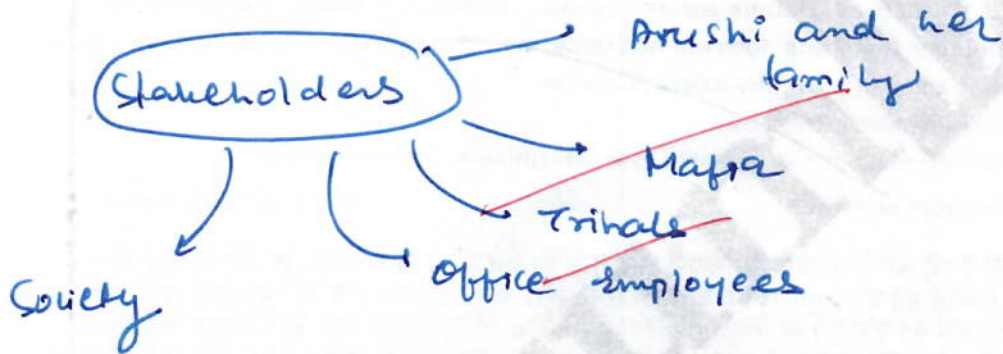 Stakeholders
Arushi and her
family
Mafia
Tribals
Office Employees
Society